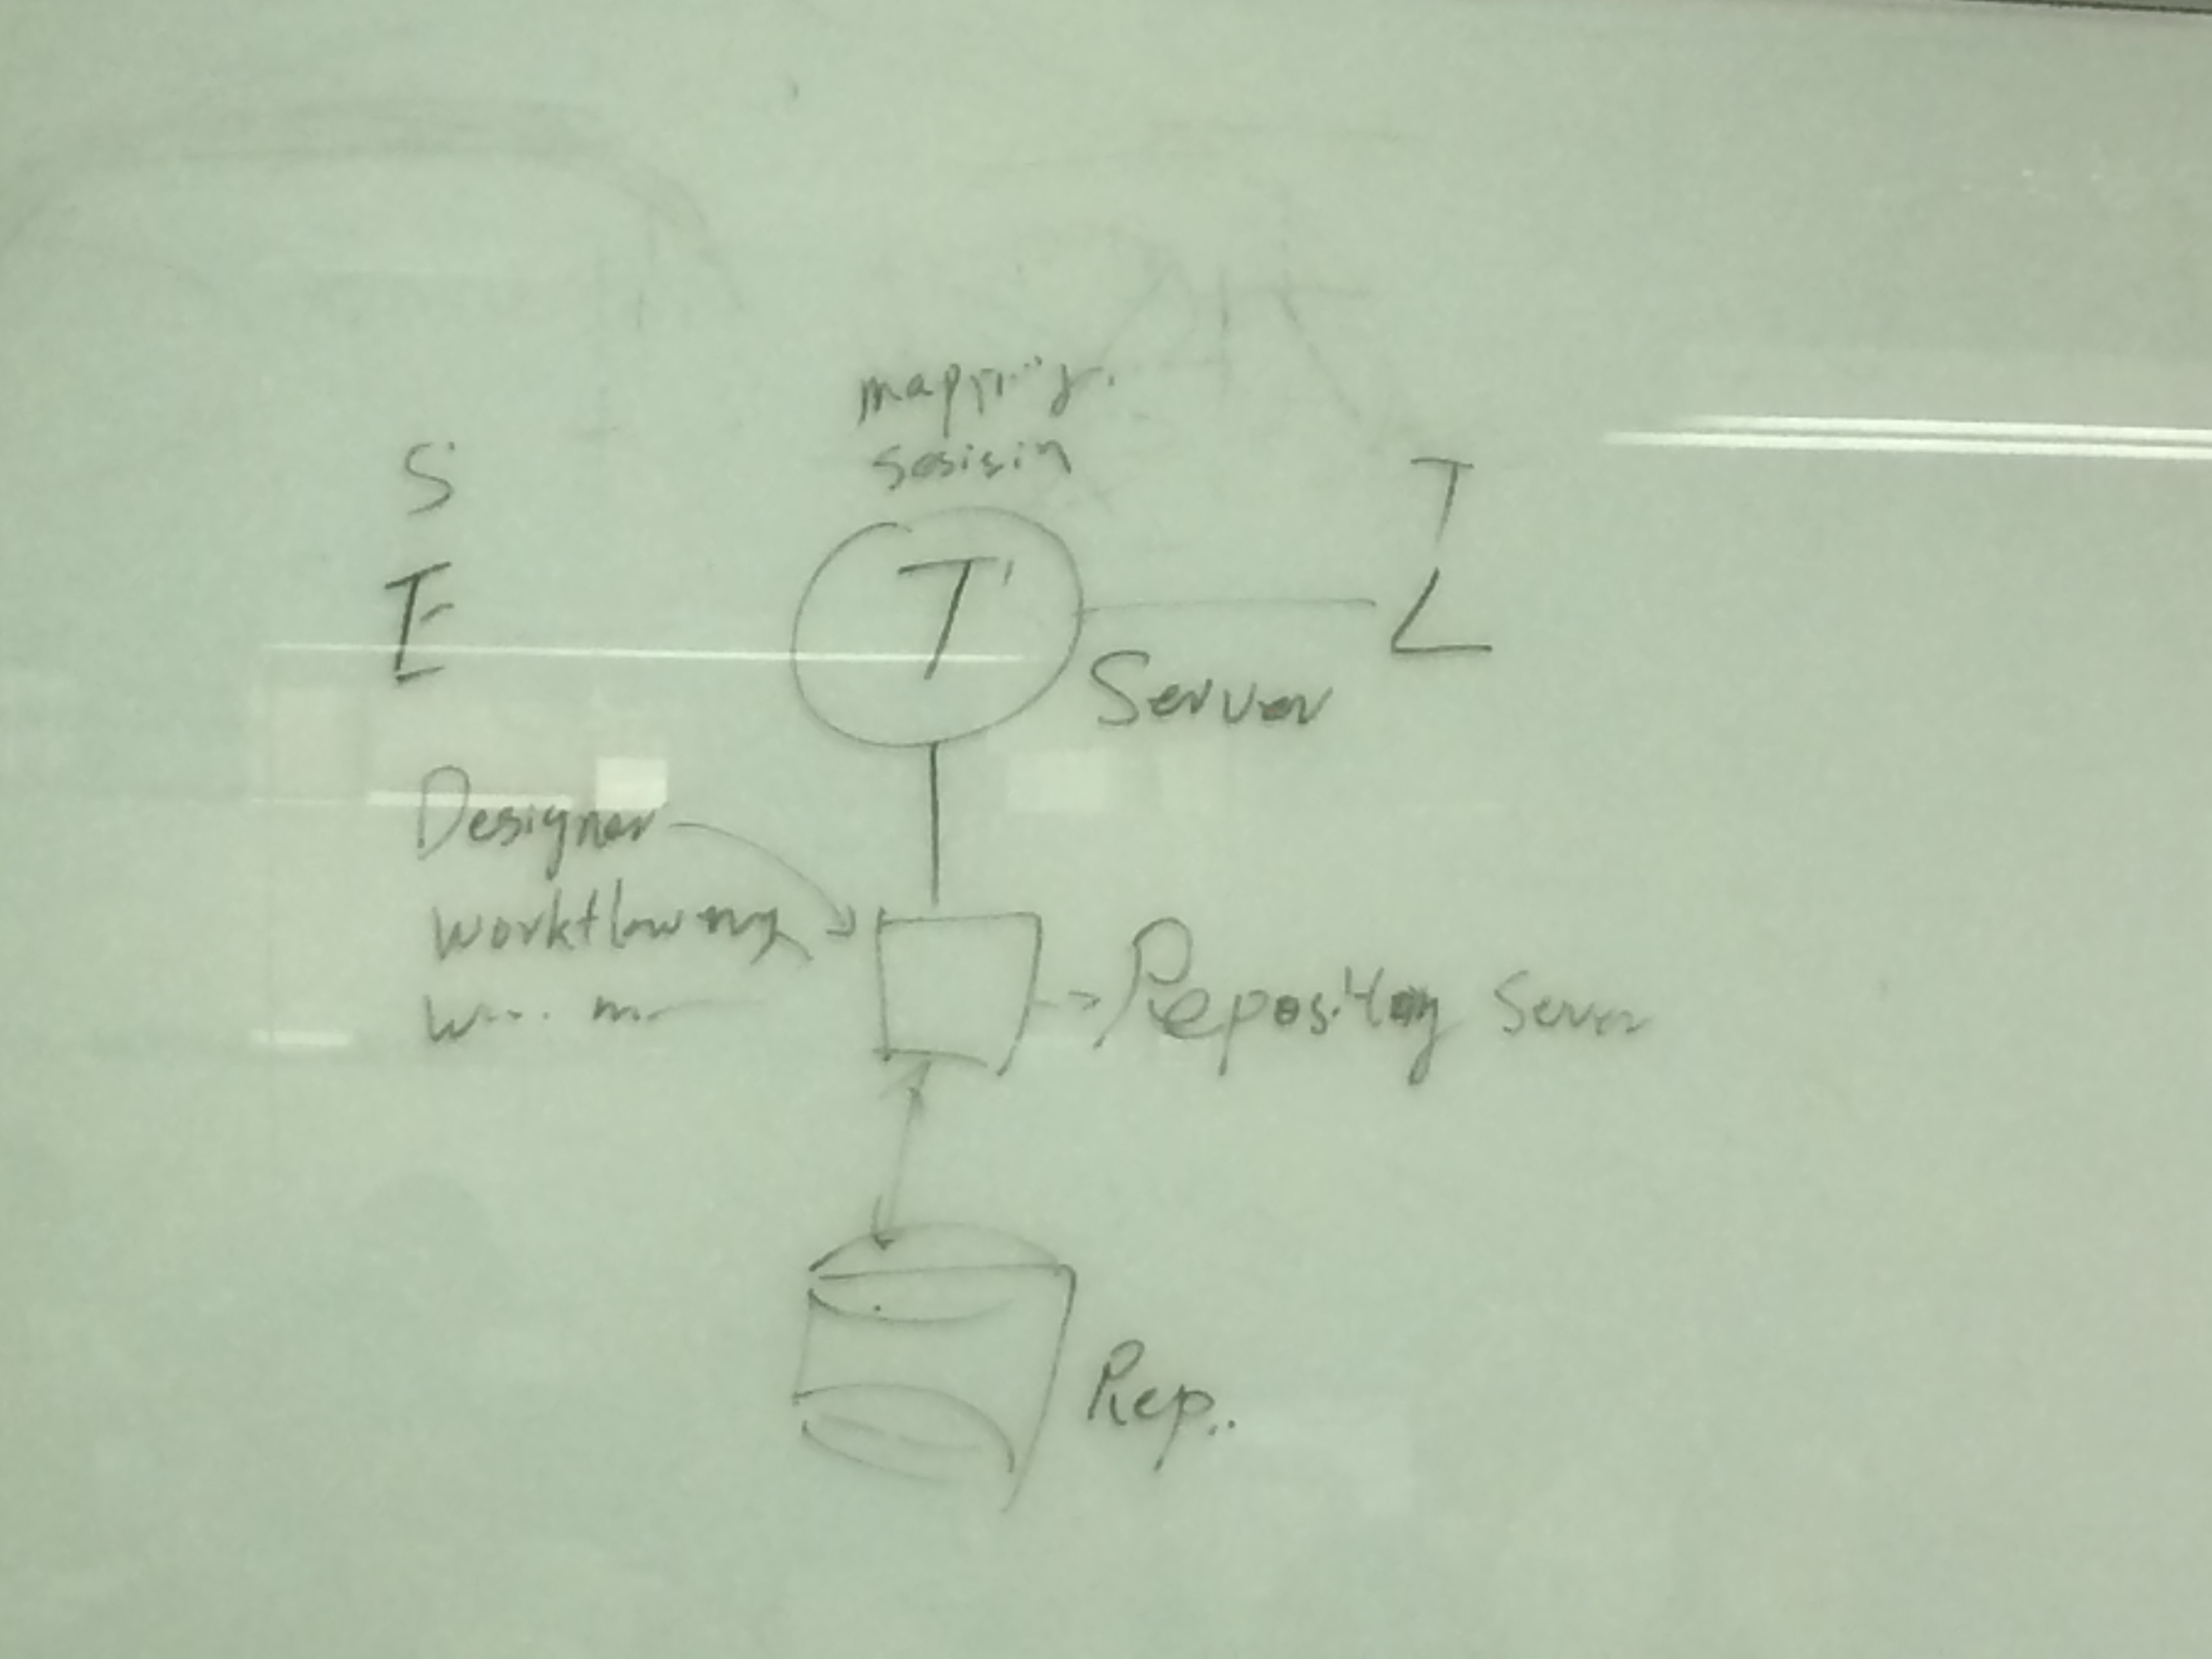 mapping
sesisin
S
T
E
T
L
Server
Designer
workflow mg
W... m
Repository Server
Rep..